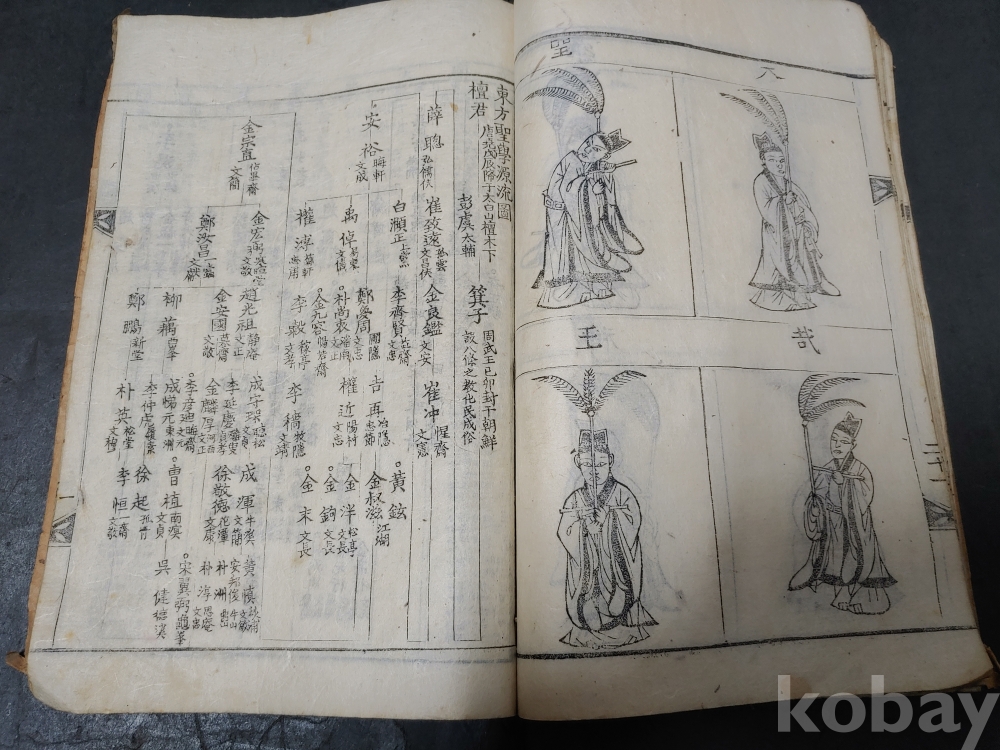 聖
八
王
哉
二十一
東方聖學源流圖
檀君
戊辰降于太白山檀木下
彭虞 太輔
箕子 周武王己卯封于朝鮮
設八條之教化民成俗
薛聰 弘儒侯
崔致遠 孤雲 文昌侯
金良鑑 文安
崔冲 惺齋 文憲
安裕 晦軒 文成
白頤正 上黨
李齊賢 益齋 文忠
禹倬 易東 文僖
權溥 菊軒
鄭夢周 圃隱 文忠
朴尚衷 文正
金九容 惕若齋
李穀 稼亭 文孝
吉再 冶隱 忠節
權近 陽村 文忠
李穡 牧隱 文靖
黃鉉
金叔滋 江湖
金泮 松亭 文長
金鉤 文長
金末 文長
金宗直 佔畢齋 文簡
金宏弼 寒暄堂 文敬
鄭汝昌 一蠹 文獻
趙光祖 靜庵 文正
金安國 慕齋 文敬
柳藕 西峯
鄭鵬 新堂
成守琛 聽松 文貞
李延慶
金麟厚 河西 文正
李彦迪 晦齋 文元
成悌元 東洲
李仲虎 履素
朴英 松堂 文穆
成渾 牛溪 文簡
徐敬德 花潭 文康
曺植 南溟 文貞
徐起 孤青
李恒 一齋 文敬
黃愼 文敏
安邦俊 牛山
朴洲
朴淳 思庵 文忠
宋翼弼 龜峯
吳健 德溪
一
kobay